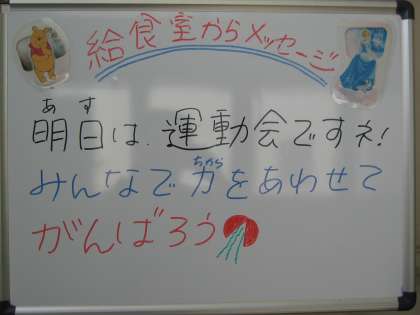 給食室からメッセージ
あす
明日は、運動会ですネ!
ちから
みんなで力をあわせて
がんばろう